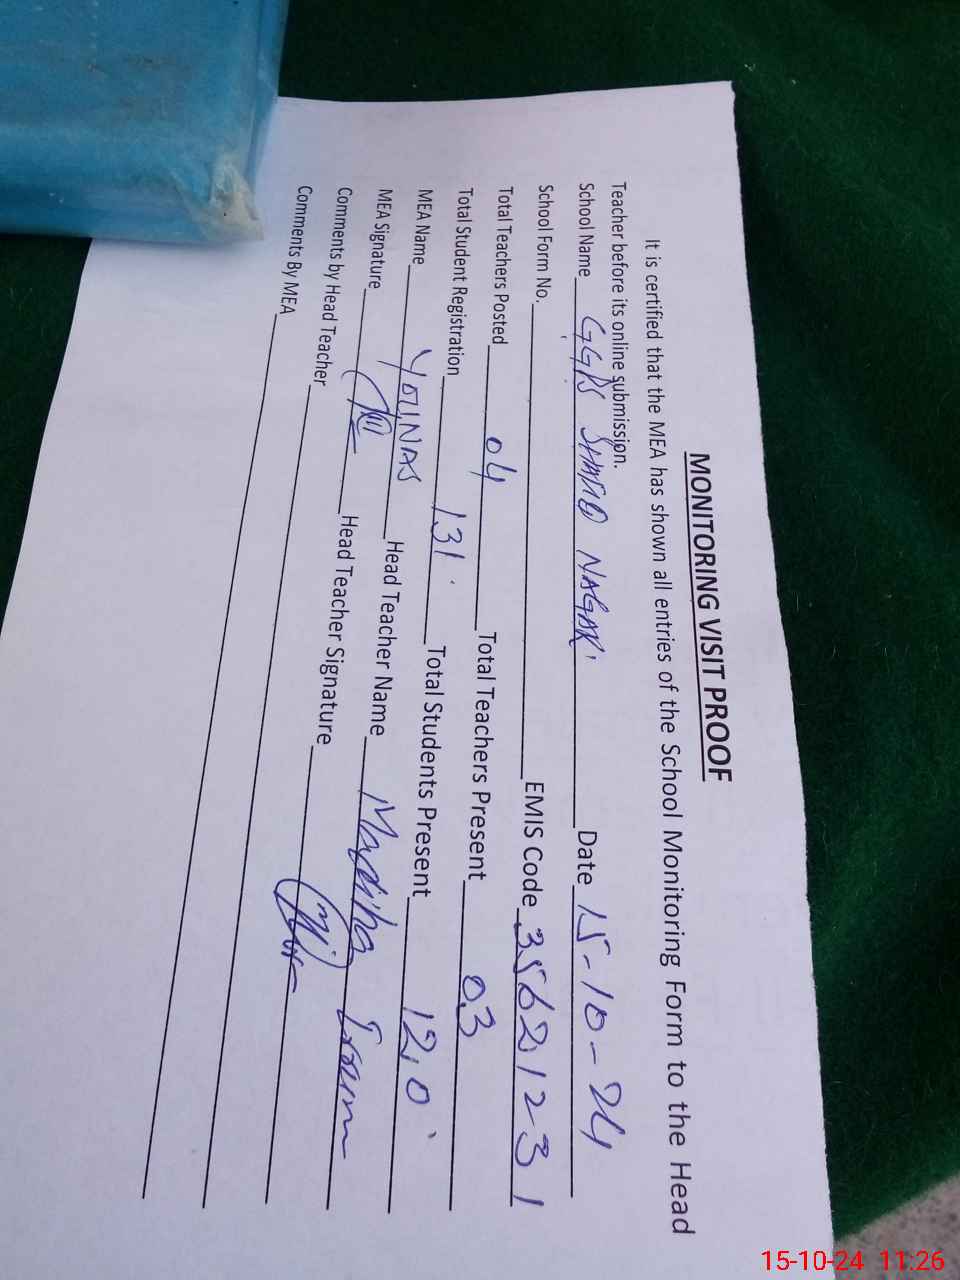 MONITORING VISIT PROOF
It is certified that the MEA has shown all entries of the School Monitoring Form to the Head
Teacher before its online submission.
School Name GGPS SHAHID NAGAR Date 15-10-24
School Form No. EMIS Code 35621231
Total Teachers Posted 04 Total Teachers Present 03
Total Student Registration 131 Total Students Present 120
MEA Name YOUNAS Head Teacher Name Madiha Irum
MEA Signature Head Teacher Signature
Comments by Head Teacher
Comments By MEA
15-10-24 11:26